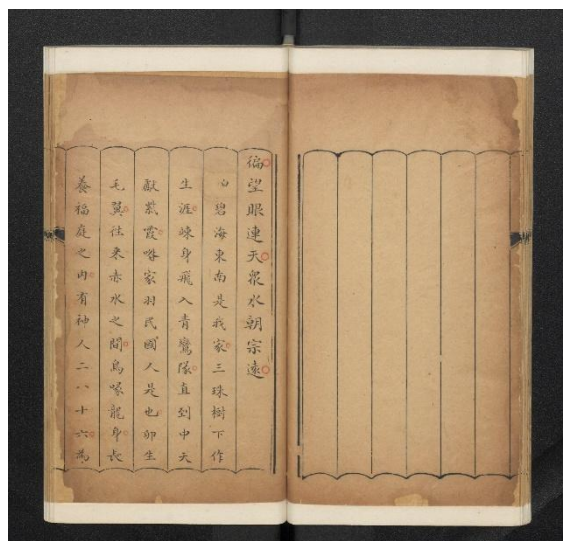 徧望眼連天衆水朝宗遠
白碧海東南是我家三珠樹下作
生涯竦身飛入青鸞隊直到中天
獻紫霞咱家羽民國人是也卵生
毛翼往來赤水之間鳥喙龍身長
養福庭之內有神人二八十六為